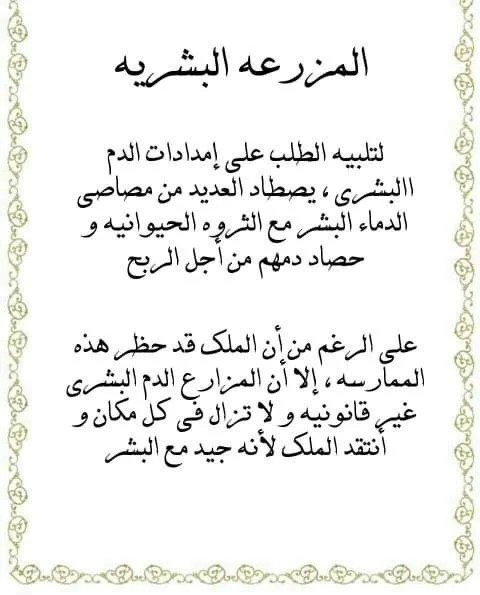 المزرعه البشريه
لتلبيه الطلب على إمدادات الدم
االبشرى ، يصطاد العديد من مصاصى
الدماء البشر مع الثروه الحيوانيه و
حصاد دمهم من أجل الربح
على الرغم من أن الملك قد حظر هذه
الممارسه ، إلا أن المزارع الدم البشرى
غير قانونيه و لا تزال فى كل مكان و
أنتقد الملك لأنه جيد مع البشر